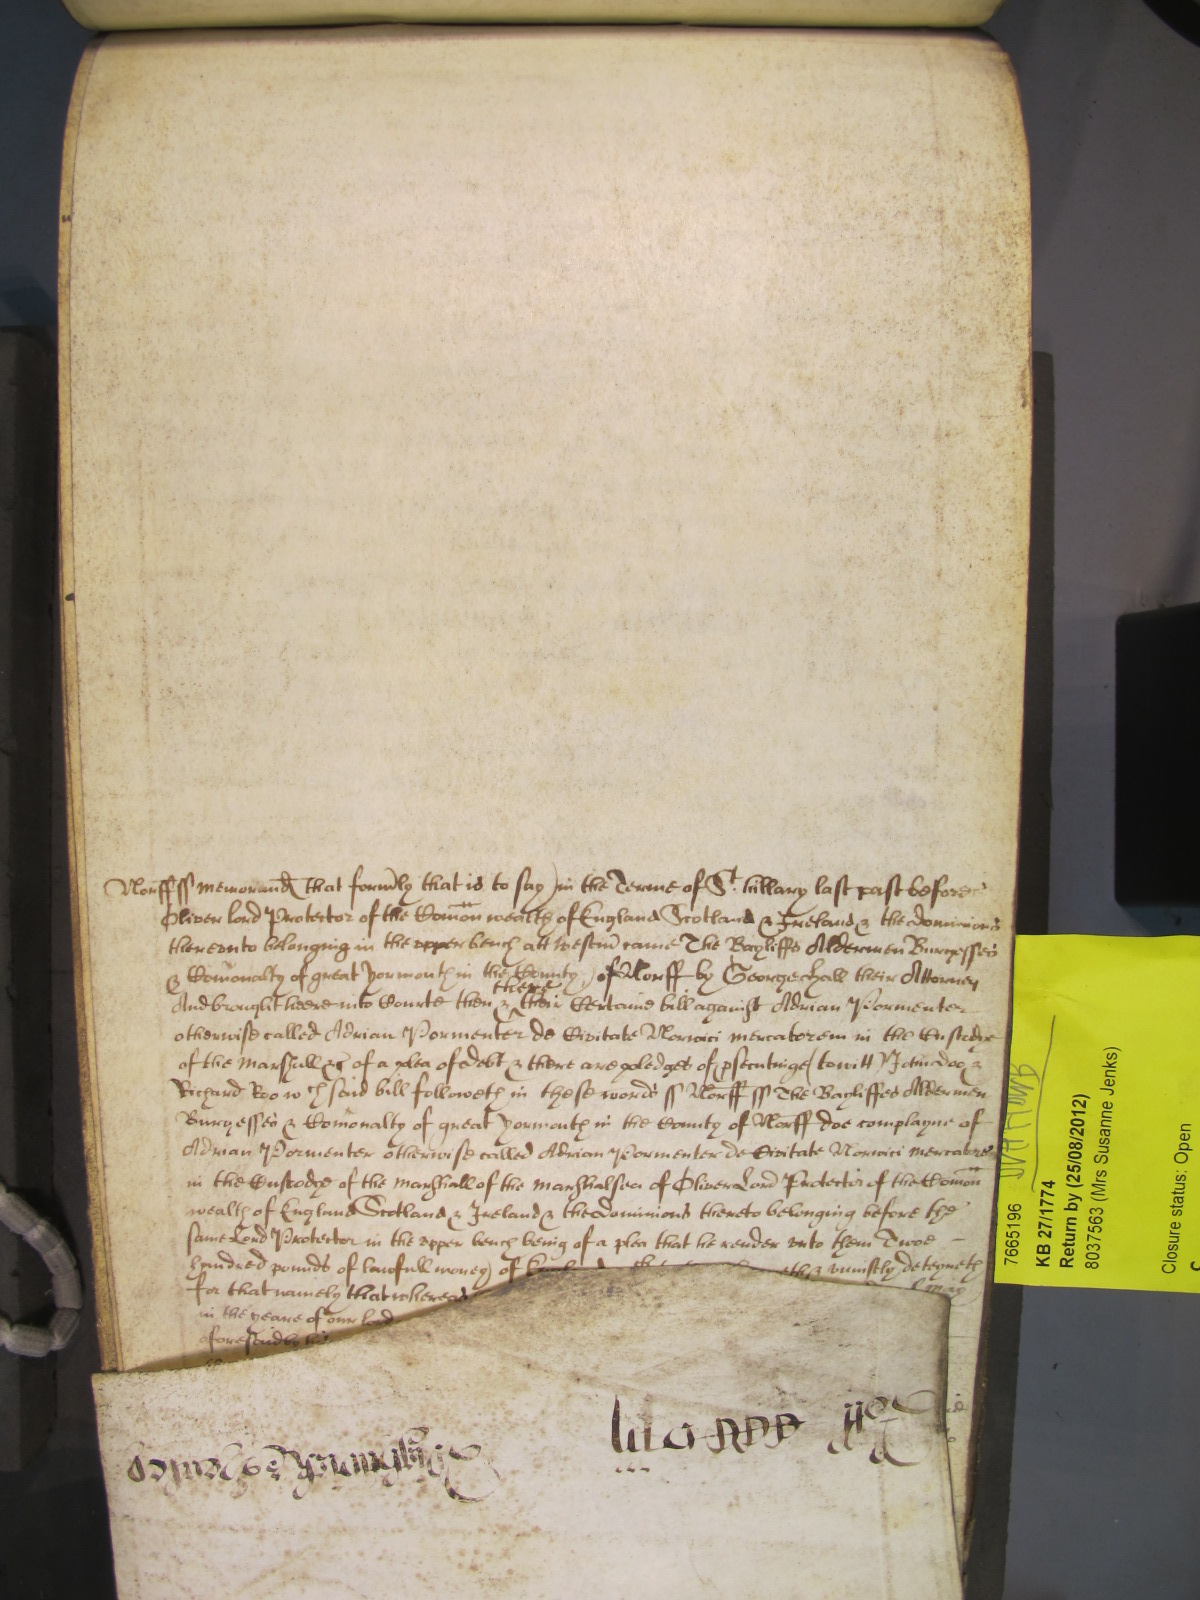 Norff ss memorand That formly that is to say in the Terme of St. hillary last past before
Oliver lord Protector of the Comon wealth of England Scotland & Ireland & the dominions
thereunto belonging in the upper bench att westm came The Bayliffs Aldermen Burgesses
& Comonalty of great yormouth in the County of Norff by George Hall their Attorney
there
And brought heere into Courte then & their Certaine bill against Adrian Parmenter
otherwise called Adrian Parmenter de Civitate Norwici mercatorem in the Custodye
of the Marshall &c of a plea of debt & there are pledges of psecutinge towitt John doo &
Richard Roo wch said bill followeth in these words ss Norff ss The Bayliffes Aldermen
Burgesses & Comonalty of great yormouth in the County of Norff doe complayne of
Adrian Parmenter otherwise called Adrian Parmenter de Civitate Norwici mercatorem
in the Custodye of the marshall of the marshalsea of Oliver Lord Protector of the Comon
wealth of England Scotland & Ireland & the dominions thereto belonging before the
same Lord Protector in the upper bench being of a plea that he render unto them Twoe
hundred pounds of lawfull money of & uniustly deteyneth
for that namely that whereas
in the yeare of our lord
aforesaid
7665196
KB 271/1774
Return by (25/08/2012)
8037563 (Mrs Susanne Jenks)
Closure status: Open